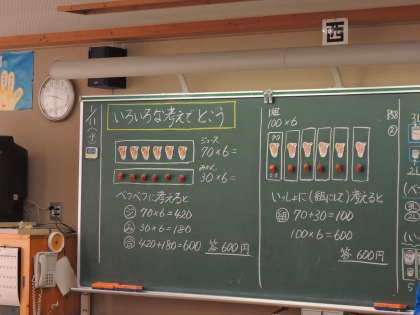 11/
いろいろな考えでとこう
ジュース
70×6=
みかん
30×6=
べつべつに考えると
ジ 70×6=420
み 30×6=180
合 420+180=600 答600円
1組
100×6
いっしょに(組にして)考えると
組 70+30=100
100×6=600
答600円
西
P88
②